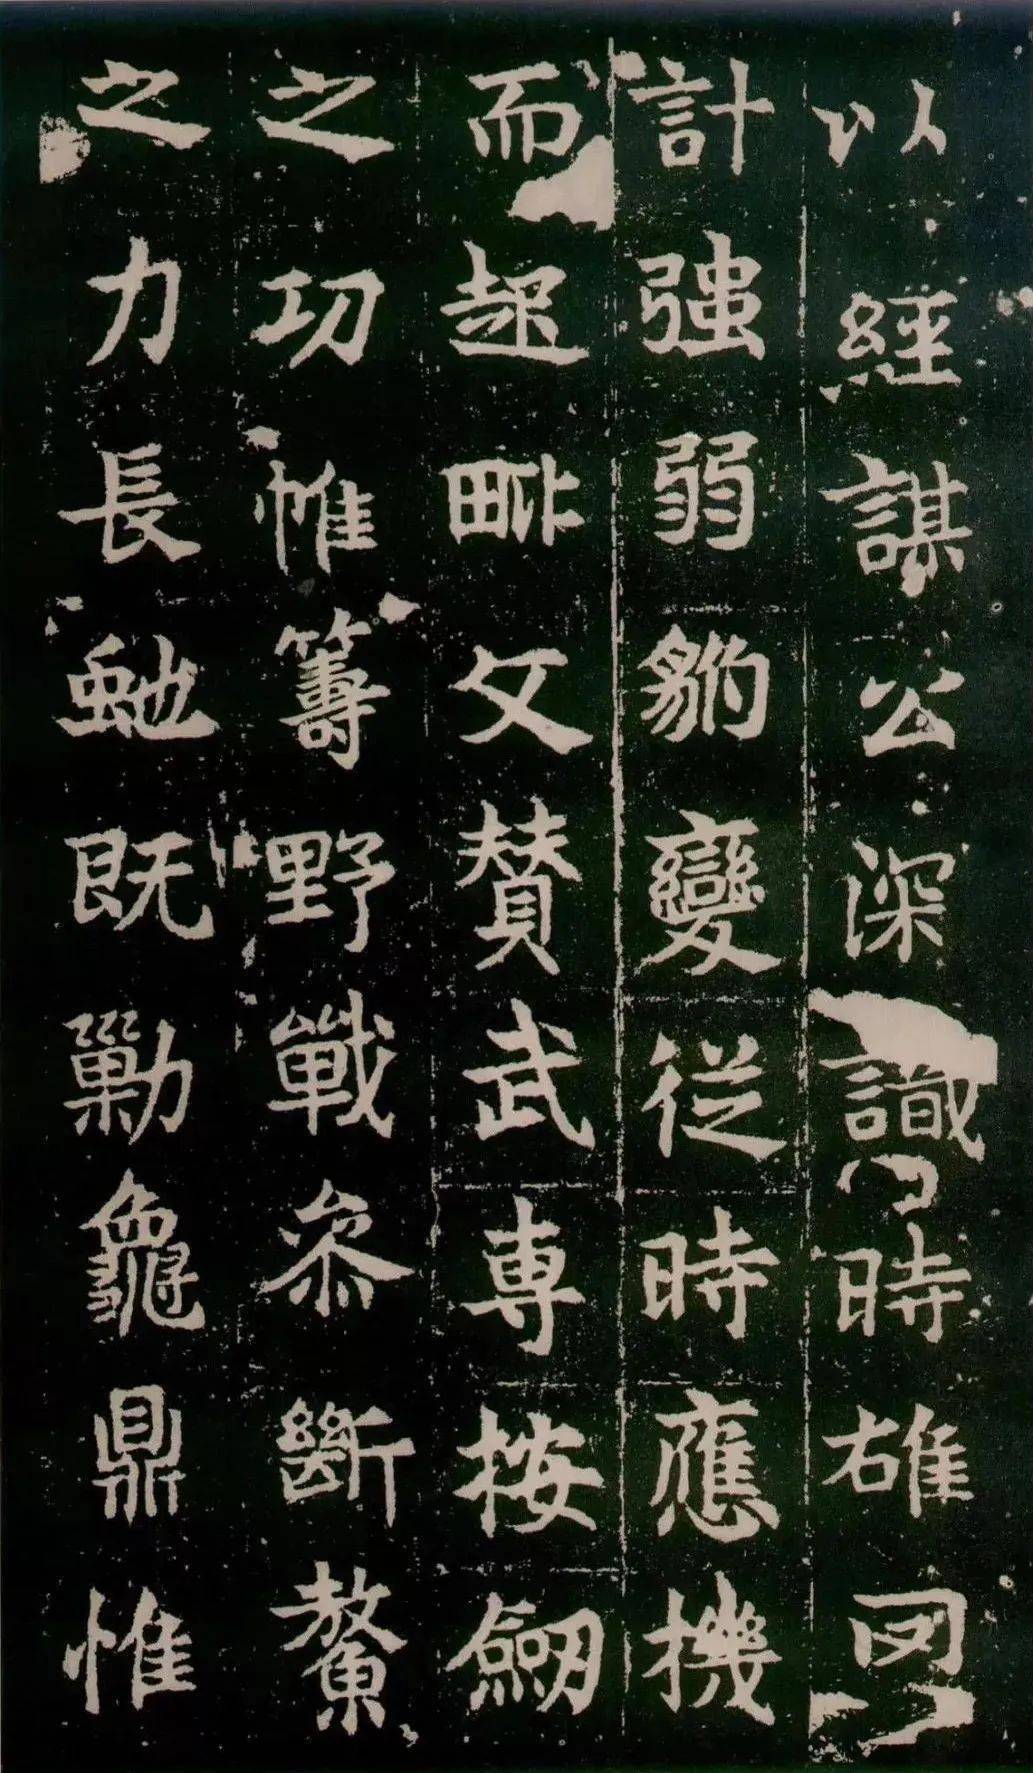 以經謀公深識時雄
計強弱豹變從時應機
而起毗文贊武專按劒
之功帷籌野戰參斷鼇
之力長虵既勦龜鼎惟